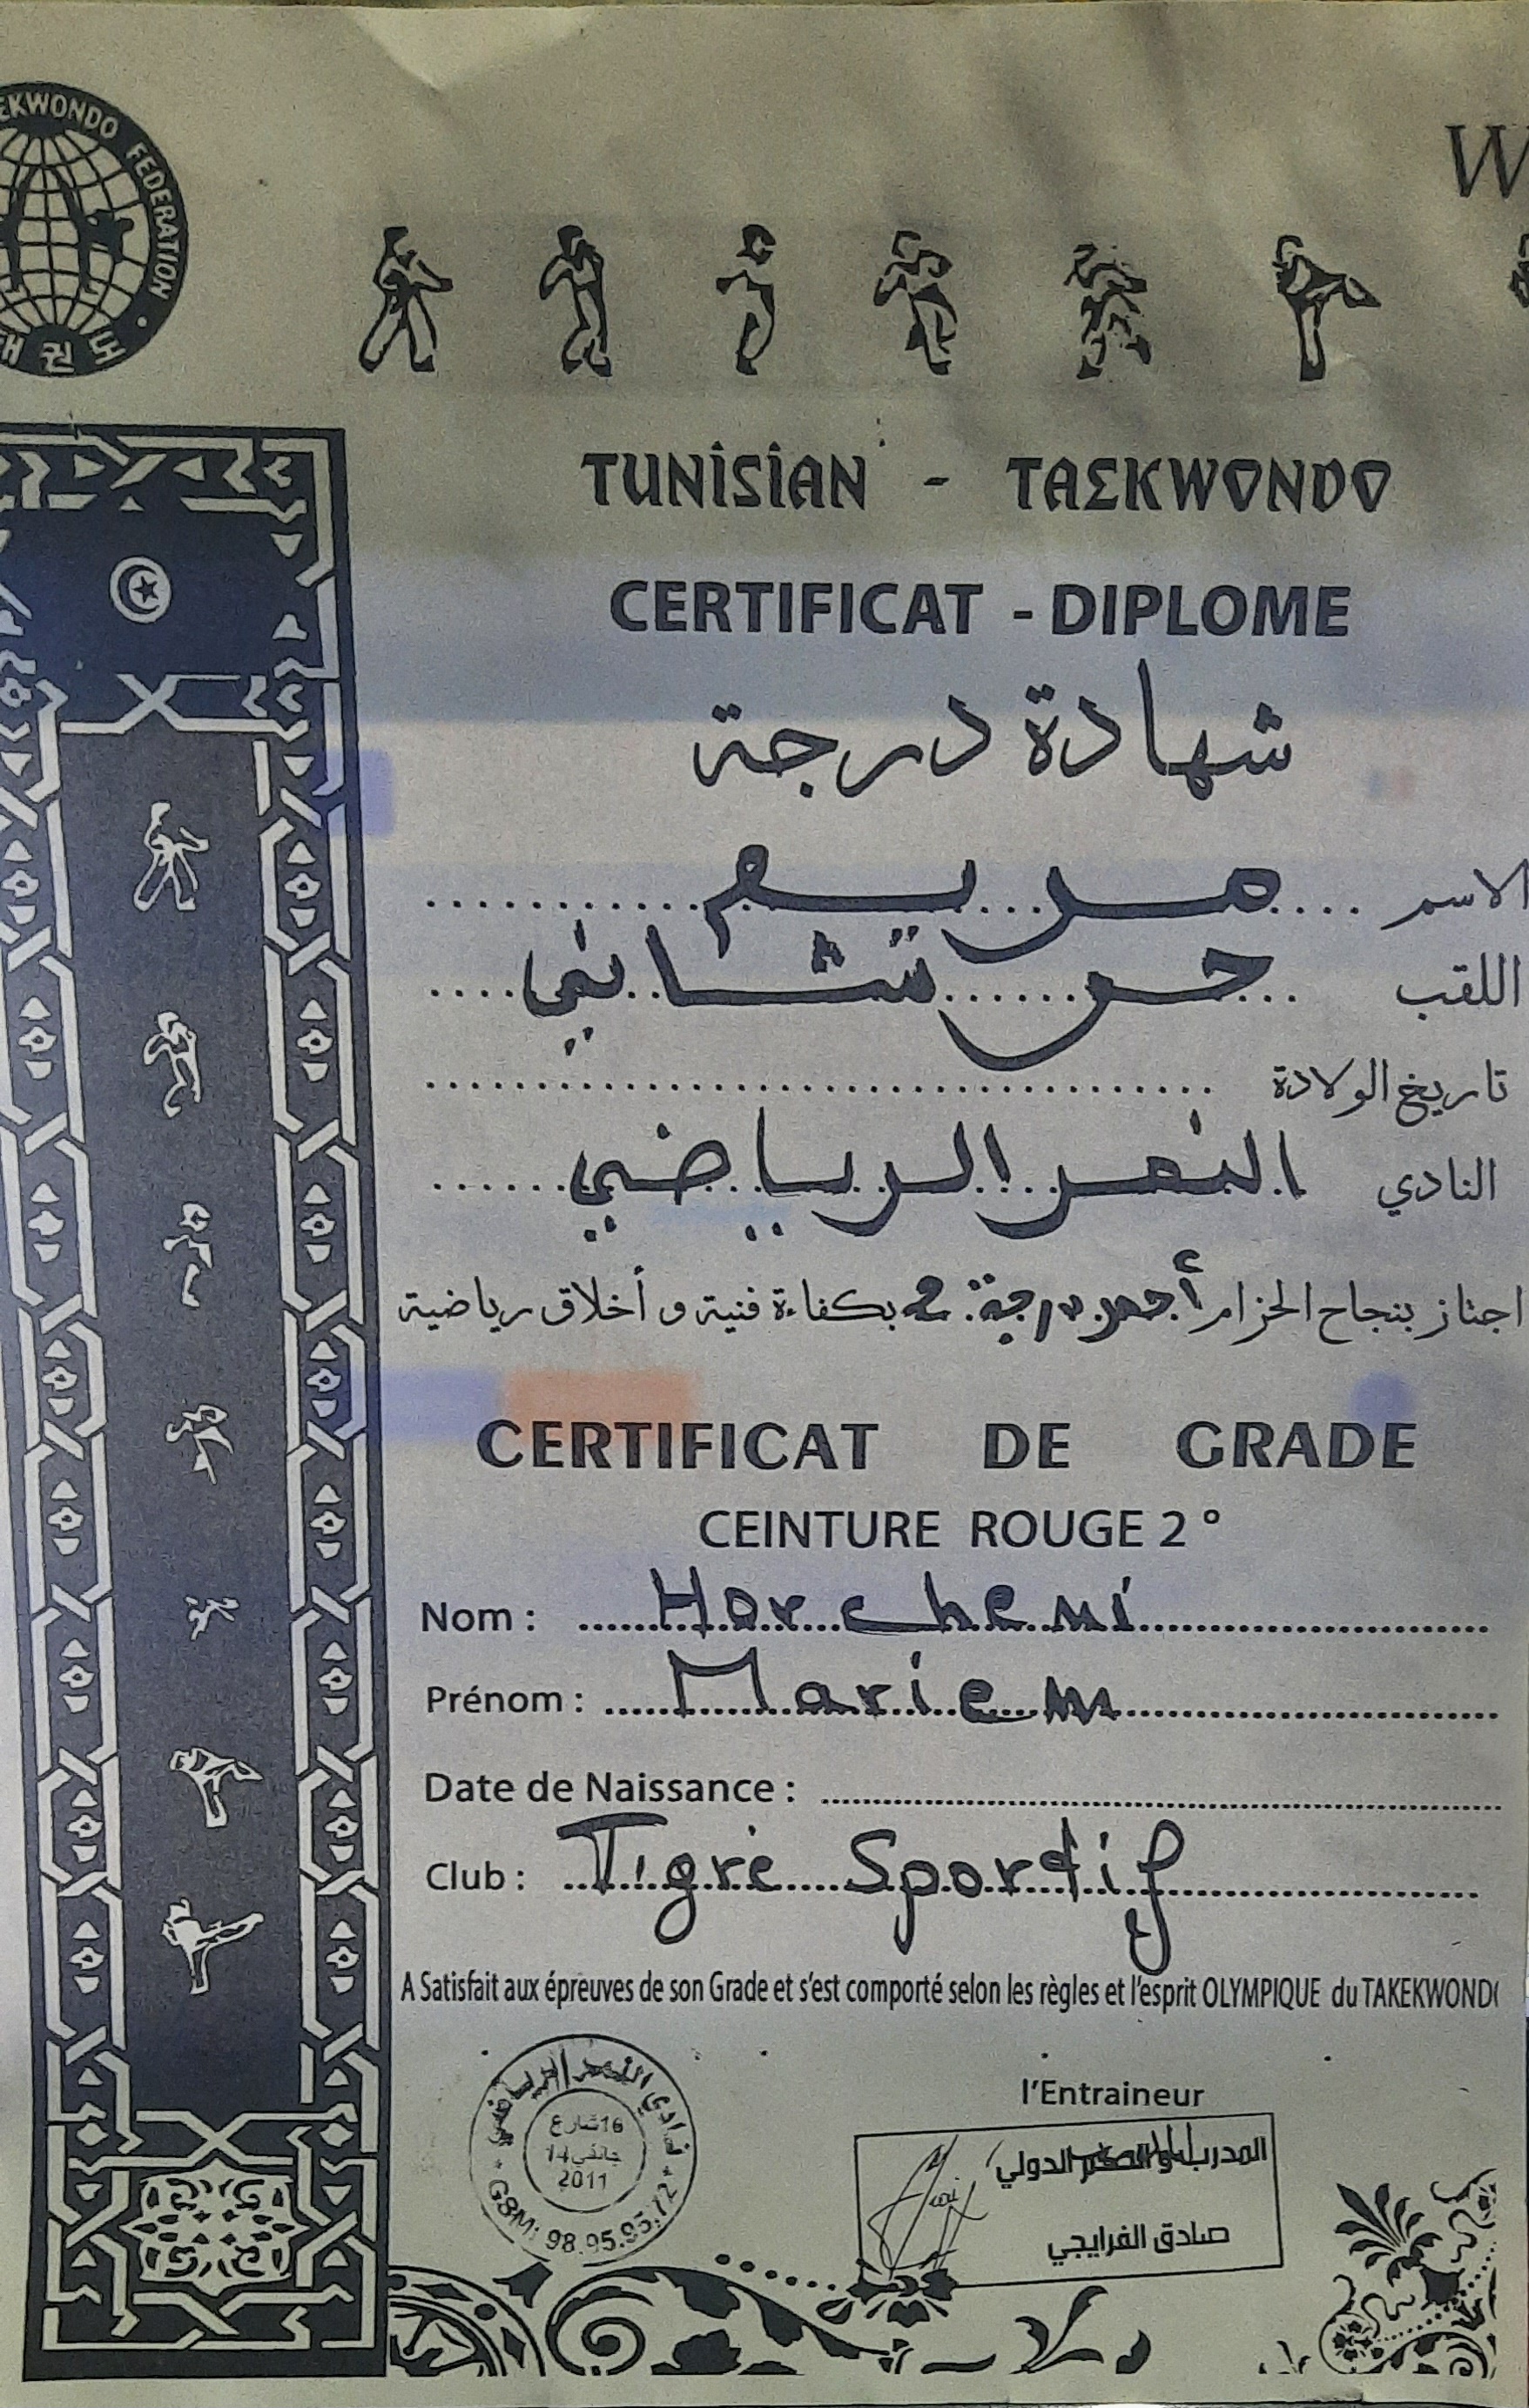 EKWONDO FEDERATION
W
TUNISIAN - TAEKWONDO
CERTIFICAT - DIPLOME
شهادة درجة
الاسم .... مريم ............
اللقب ... حرشاني ....
تاريخ الولادة ....................................
النادي النمر الرياضي ......
اجتاز بنجاح الحزام أحمر درجة: 2 بكفاءة فنية و أخلاق رياضية
CERTIFICAT DE GRADE
CEINTURE ROUGE 2 °
Nom : Horchemi
Prénom : Mariem
Date de Naissance :
Club : Tigre Sportif
A Satisfait aux épreuves de son Grade et s'est comporté selon les règles et l'esprit OLYMPIQUE du TAKEKWONDO
نادي النمر الرياضي
16 شارع
14 جانفي
2011
GSM: 98.95.95.72
l'Entraineur
المدرب الدولي
صادق الفرايجي